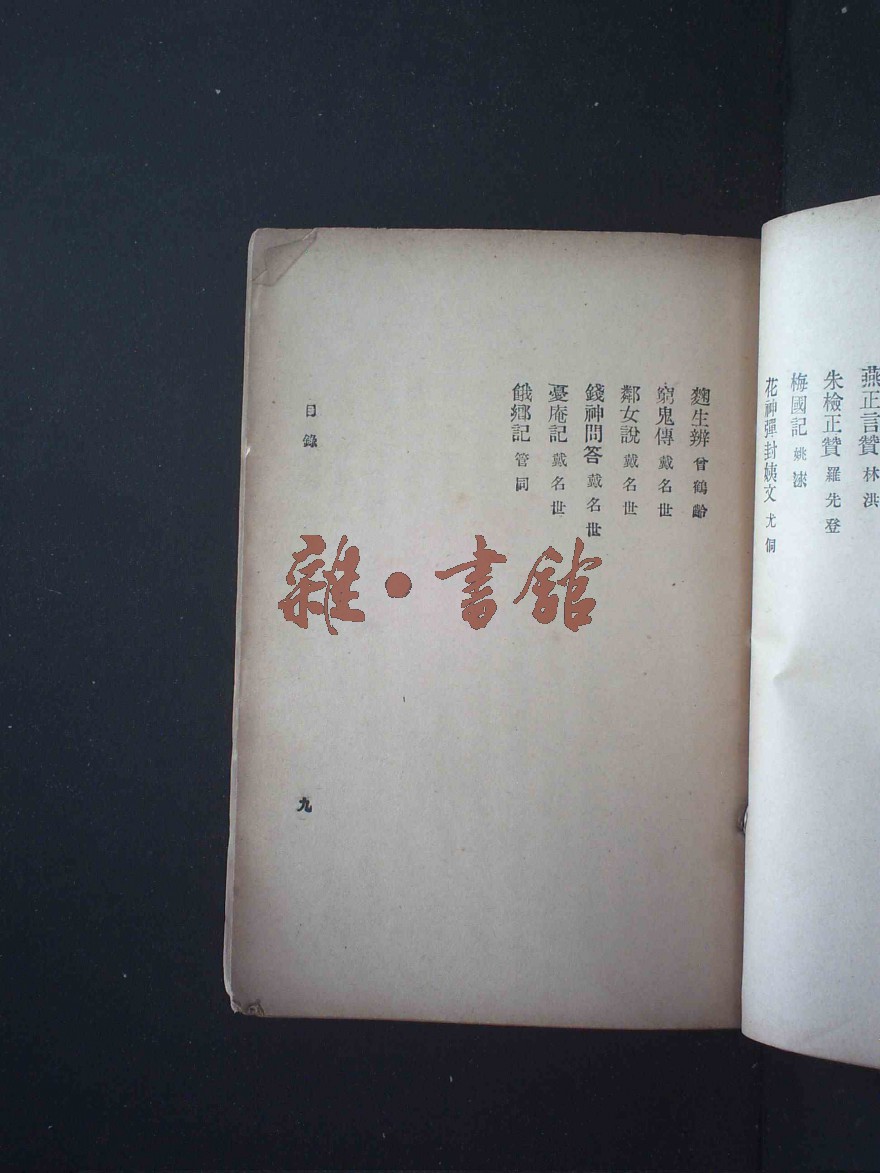 燕正言贊 林洪
朱檢正贊 羅先登
梅國記 姚淶
花神彈封姨文 尤侗
麴生辨 曾鶴齡
窮鬼傳 戴名世
鄰女說 戴名世
錢神問答 戴名世
憂庵記 戴名世
餓鄉記 管同
目錄
九
雜·書館